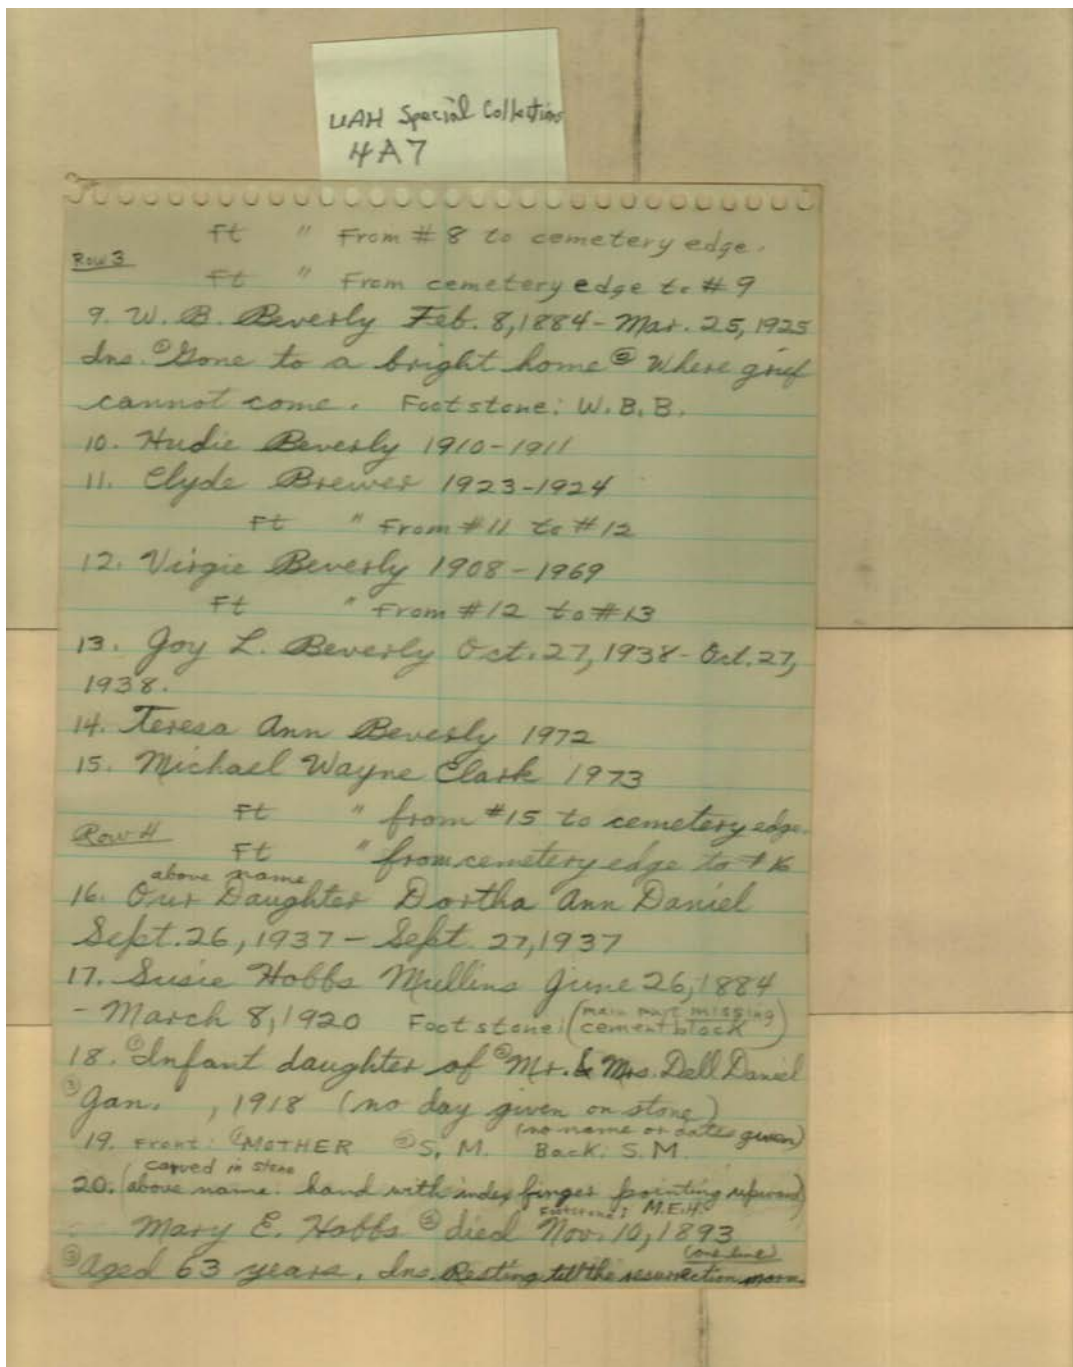 UAH Special Collections
4A7
Ft " From #8 to cemetery edge.
Row 3
Ft " From cemetery edge to #9
9. W. B. Beverly Feb. 8, 1884 - Mar. 25, 1925
Ins. ① Gone to a bright home ② Where grief
cannot come. Footstone: W. B. B.
10. Hudie Beverly 1910-1911
11. Clyde Brewer 1923-1924
Ft " From #11 to #12
12. Virgie Beverly 1908-1969
Ft " From #12 to #13
13. Joy L. Beverly Oct. 27, 1938 - Oct. 27,
1938.
14. Teresa Ann Beverly 1972
15. Michael Wayne Clark 1973
Ft " from #15 to cemetery edge.
Row 4
Ft " from cemetery edge to #16
above name
16. Our Daughter Dortha Ann Daniel
Sept. 26, 1937 - Sept. 27, 1937
17. Susie Hobbs Mullins June 26, 1884
- March 8, 1920 Footstone: (main part missing
cement block)
18. ① Infant daughter of ② Mr. & Mrs. Dell Daniel
③ Jan. , 1918 (no day given on stone)
(no name or dates given)
19. Front: ① MOTHER ② S. M. Back: S. M.
carved in stone
20. (above name: hand with index finger pointing upward)
Footstone: M.E.H.
Mary E. Hobbs ② died Nov. 10, 1893
(one line)
③ Aged 63 years. Ins. Resting till the resurrection morn.